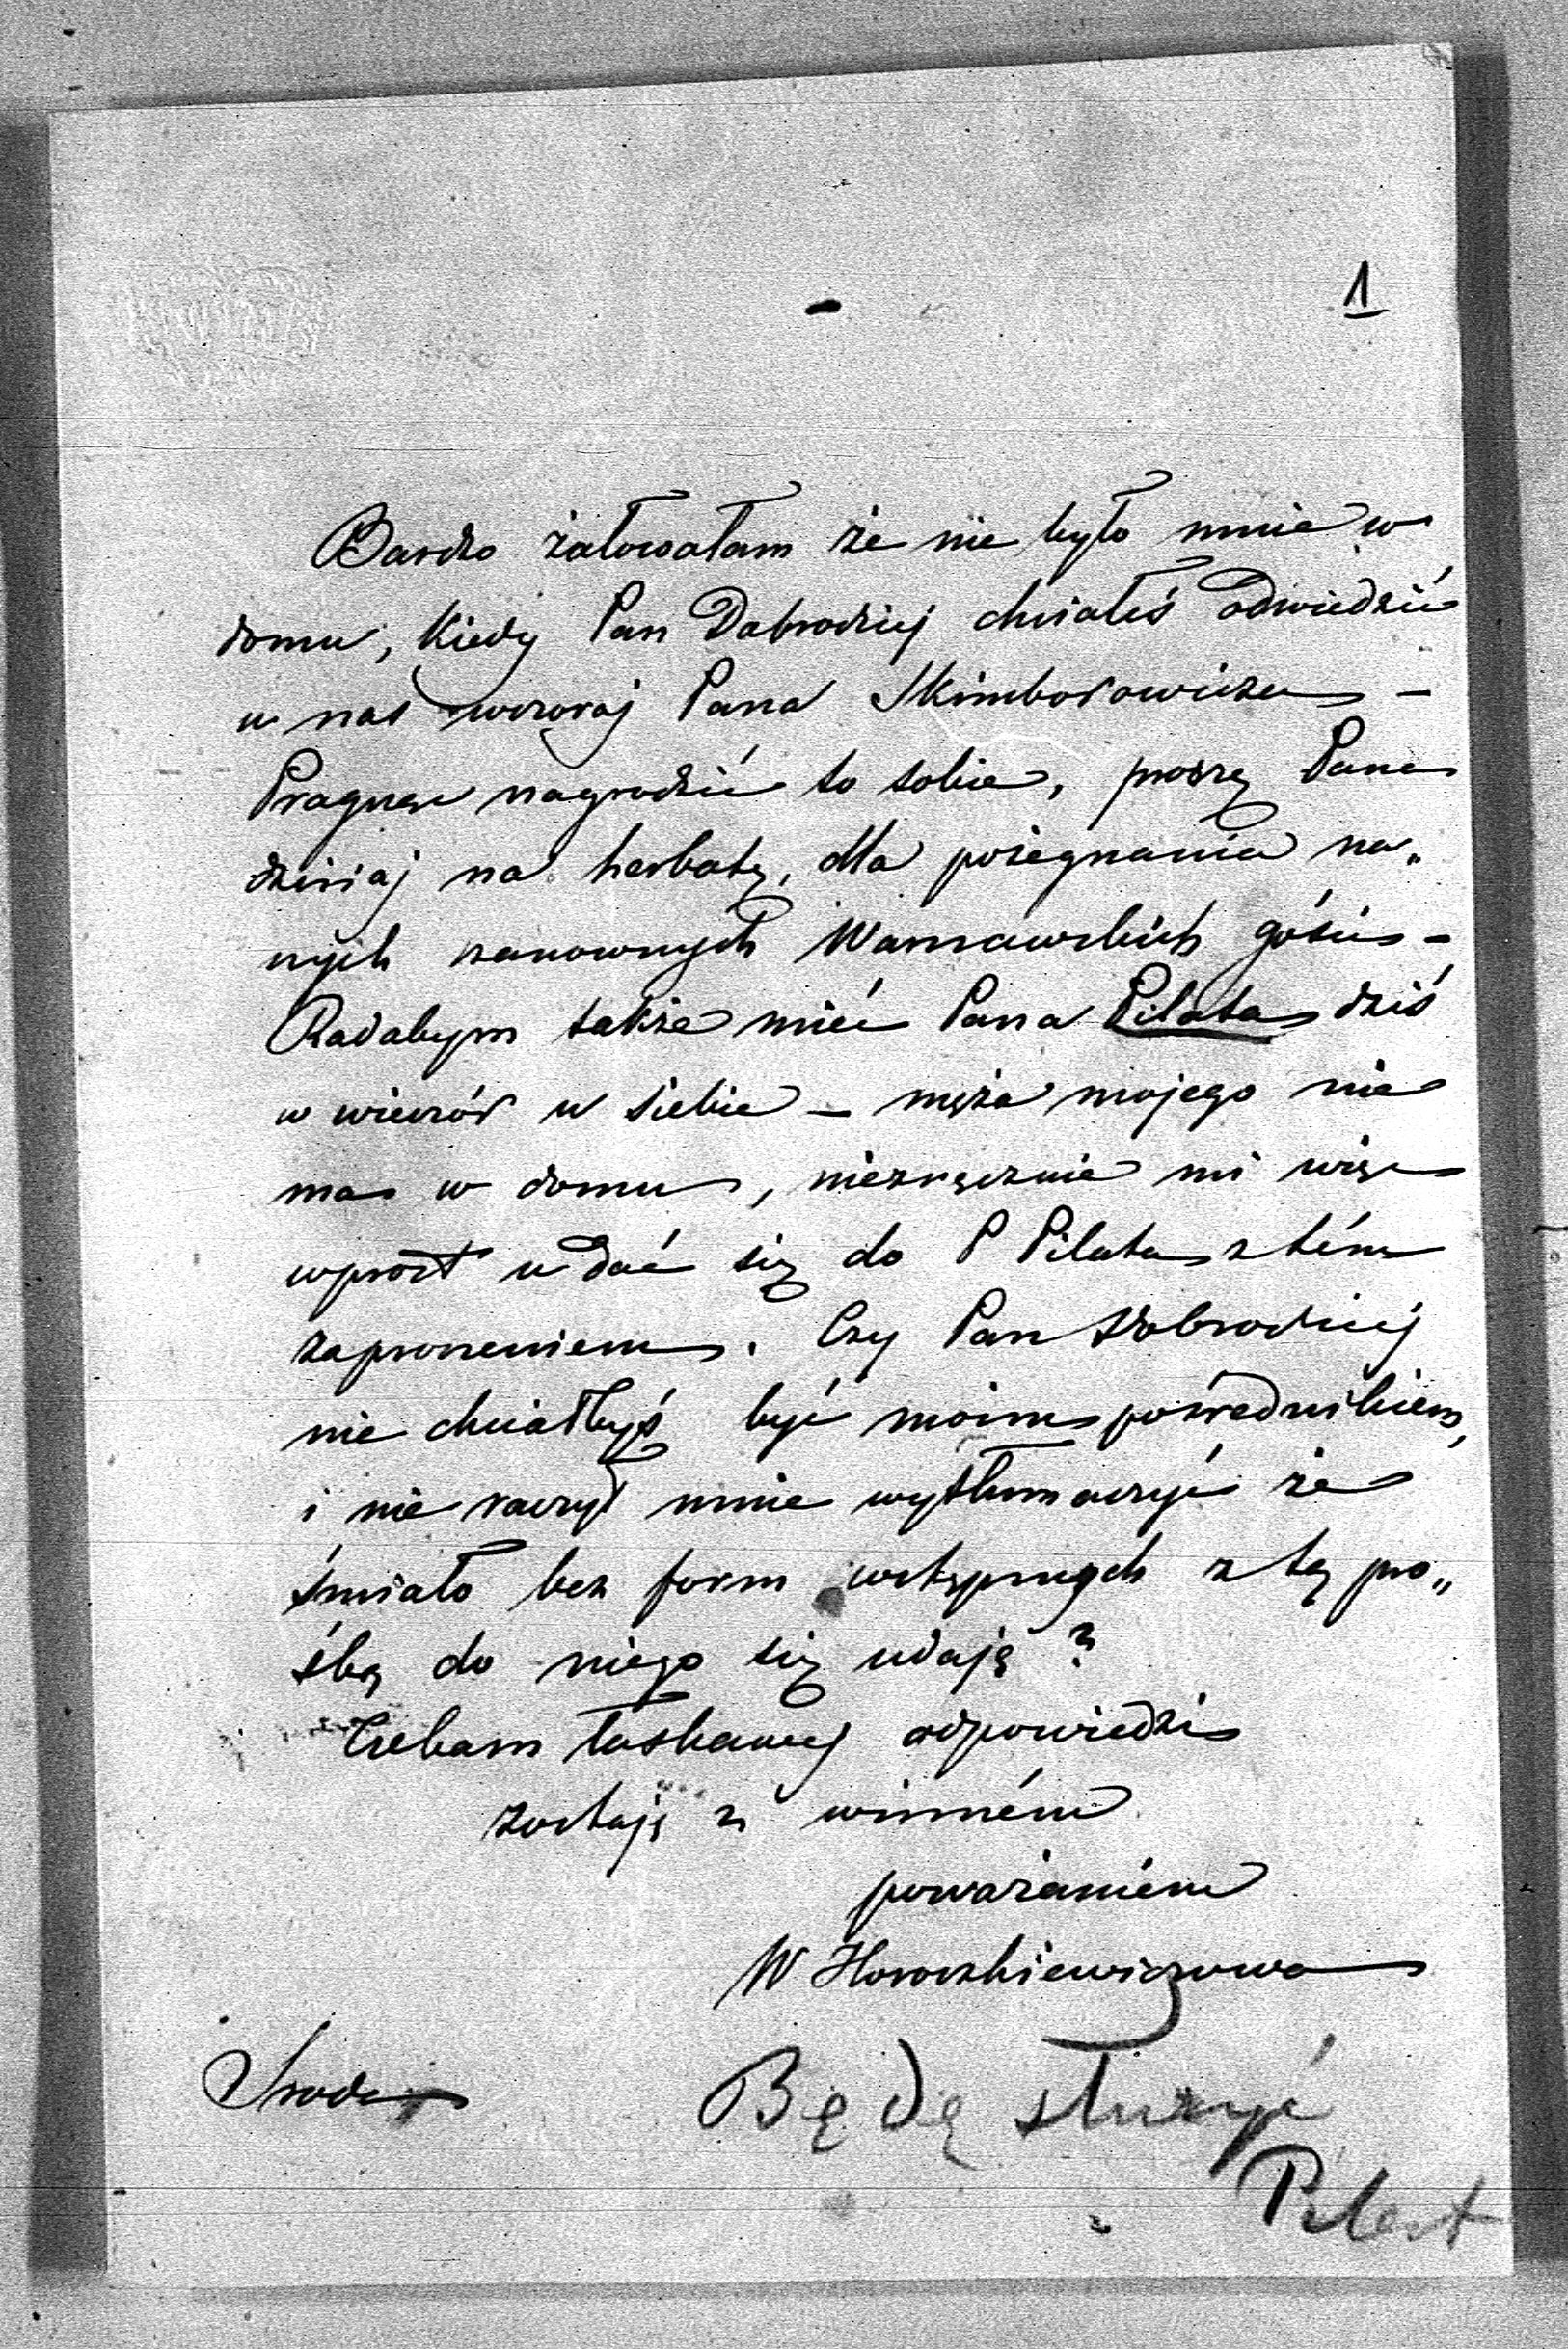 1
Bardzo żałowałam że nie było mnie w
domu, kiedy Pan Dobrodziej chciałeś odwiedzić
u nas wczoraj Pana Skimborowicza –
Pragnąc nagrodzić to sobie, proszę Pana
dzisiaj na herbatę, dla pożegnania na„
szych szanownych Warszawskich gości –
Radabym także mieć Pana Pilata dziś
w wieczór u siebie – męża mojego nie
ma w domu, niezręcznie mi więc
wprost udać się do P Pilata z tém
zaproszeniem. Czy Pan Dobrodziej
nie chciałbyś być moim pośrednikiem,
i nie raczył mnie wytłumaczyć że
śmiało bez form wstępnych z tą pro„
śbą do niego się udaję?
Czekam łaskawej odpowiedzi
zostaję z winném
poważaniém
W Horoszkiewiczowa
Sroda
Będę służyć
Pilat